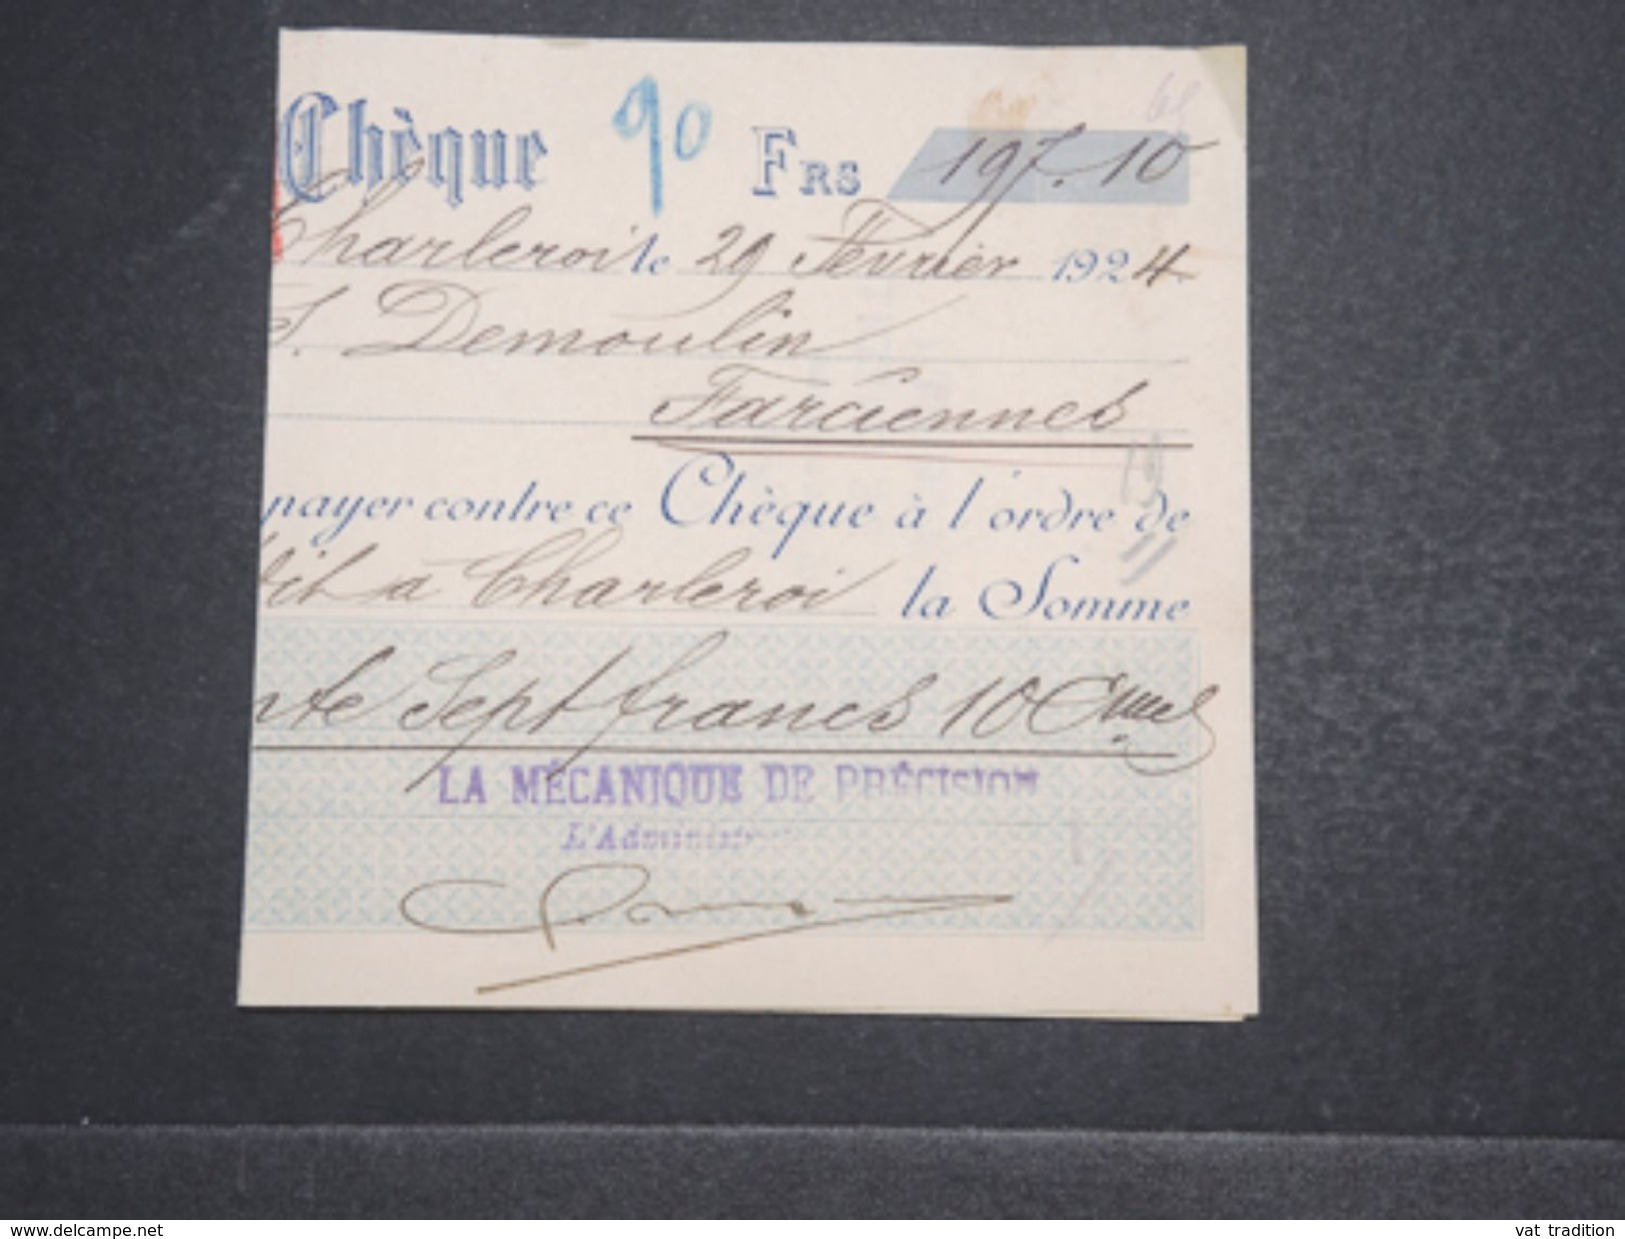 Chèque 90 FRS 197.10
Charleroi le 29 Février 1924
Demoulin
Farciennes
19
payer contre ce Chèque à l'ordre de
à Charleroi la Somme
nte Sept francs 10 Cmes
LA MÉCANIQUE DE PRÉCISION
L'Administrat
www.delcampe.net
vat tradition